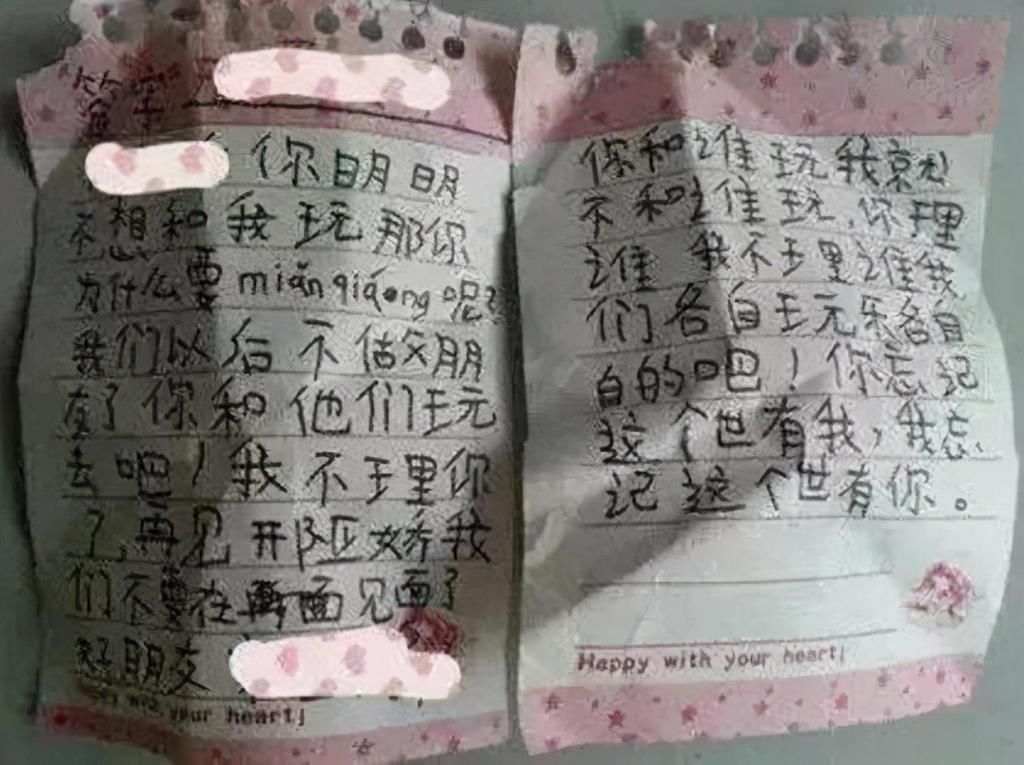 你明明
不想和我玩那你
为什么要miǎn qiáng呢?
我们以后不估交朋
友了你和他们玩
去吧！我不理你
了,再见
我
们不要在再面见面了
好朋友:
your heart!
你和谁玩我就
不和谁玩,你理
谁我不理谁我
们各自玩乐各自
白的吧！你忘记
这个世有我,我忘
记这个世有你。
Happy with your heart!